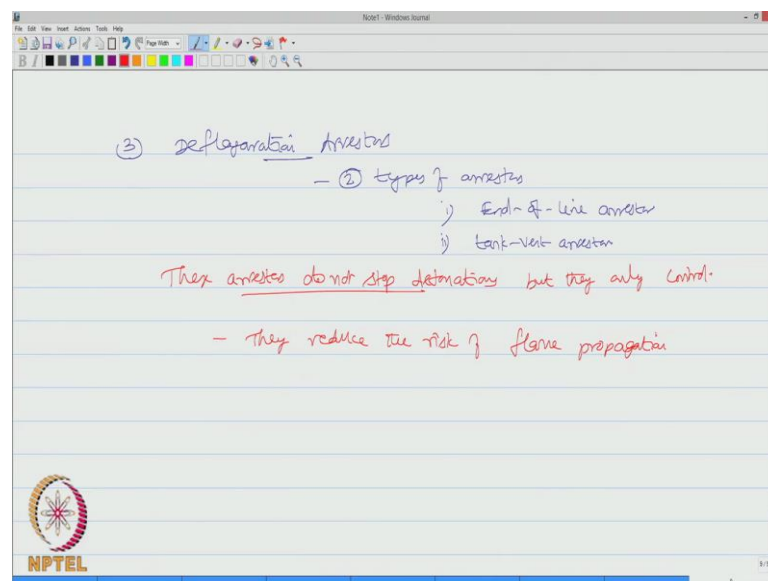 Note1 - Windows Journal
File Edit View Insert Actions Tools Help
Page Width
B I
③ Deflagaration Arrestors
- ② types of arrestes
i) End-of-line arrestor
ii) tank-vent arrestor
These arrestes do not stop detonations but they only control.
- They reduce the risk of flame propagation
NPTEL